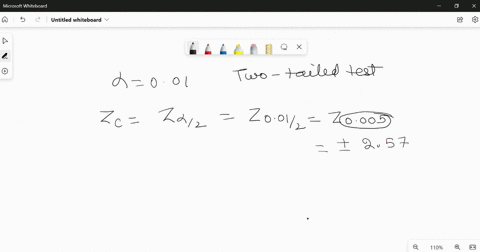 Microsoft Whiteboard
Untitled whiteboard
α = 0.01 Two-tailed test
Zc = Zα/2 = Z0.01/2 = Z0.005
= ± 2.57
110%